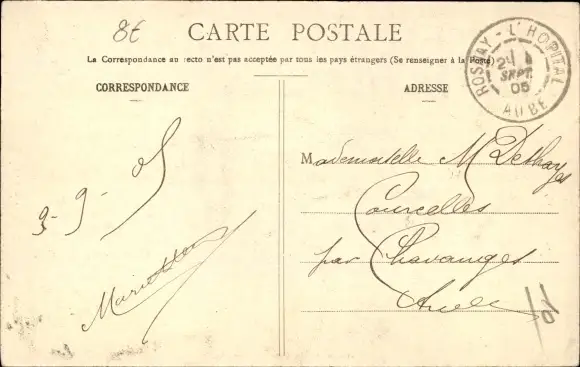 8€
CARTE POSTALE
La Correspondance au recto n'est pas acceptée par tous les pays étrangers (Se renseigner à la Poste)
CORRESPONDANCE
ADRESSE
ROSNAY - L'HOPITAL
24
SEPT.
05
AUBE
3-9-05
Mademoiselle M Dethayes
Courcelles
par Chavanges
Aube
10